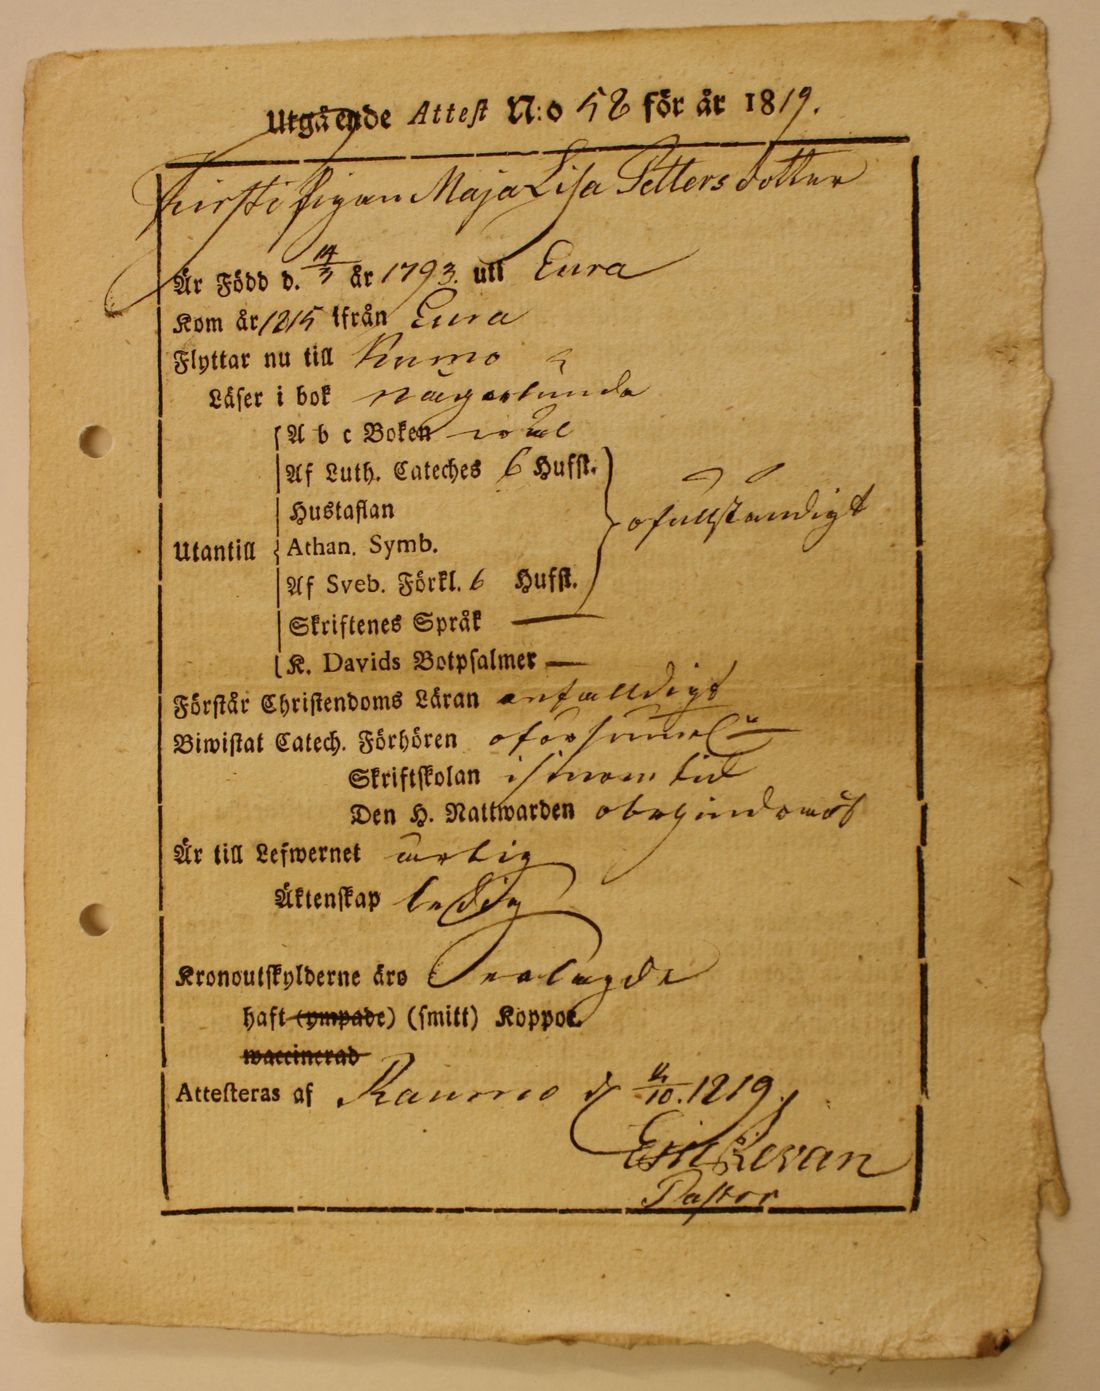 Utgående Attest N:o 58 för år 1819.
Pigan Maja Lisa Petters dotter
Är Född d. 14/3 år 1793. uti Eura
Kom år 1815 ifrån Eura
Flyttar nu till Kumo
Läser i bok någorlunda
A b c Boken wäl
Af Luth. Cateches 6 Hufst.
Hustaflan
ofullständigt
Utantill Athan. Symb.
Af Sveb. Förkl. 6 Hufst.
Skriftenes Språk —
K. Davids Botpsalmer —
Förstår Christendoms Läran enfalldigt
Biwistat Catech. Förhören oförsummel.n
Skriftskolan i sinom tid
Den H. Nattwarden
Är till Lefwernet ärlig
Äktenskap ledig
Kronoutskylderne äro erlagde
haft (ympade) (smitt) Koppor
waccinerad
Attesteras af Raumo d 1819.
Pastor